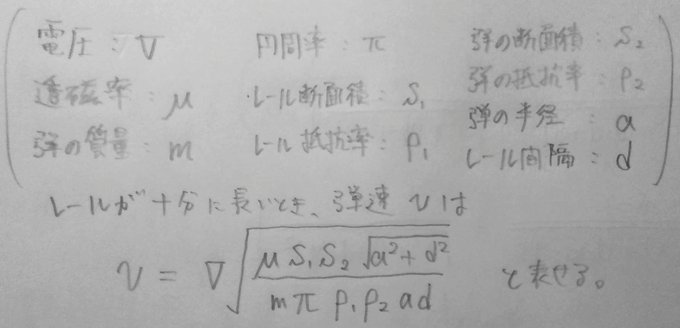 電圧：V 円周率：π 弾の断面積：S₂
透磁率：μ ・レール断面積：S₁ 弾の抵抗率：ρ₂
弾の質量：m レール抵抗率：ρ₁ 弾の半径：a
レール間隔：d
レールが十分に長いとき、弾速 v は
v = V√(μS₁S₂√(a²+d²) / mπρ₁ρ₂ad) と表せる。